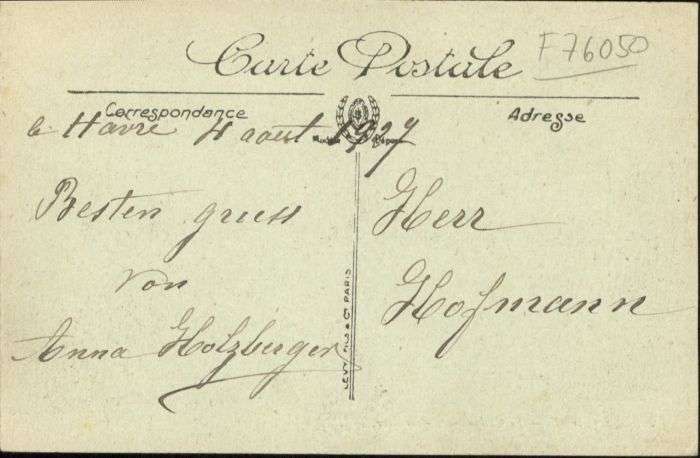 Carte Postale
F 76050
Correspondance
Adresse
le Havre 4 aout 1927
Besten gruss
von
Anna Holzberger
Herr
Hofmann
LEVY FILS & Cie PARIS